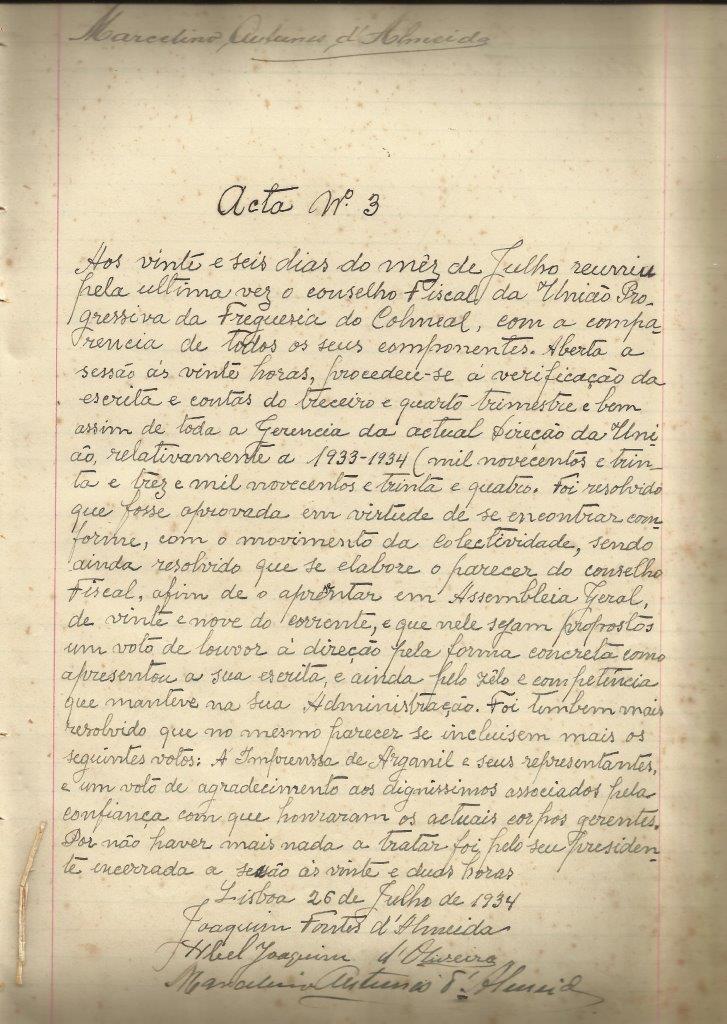 Marcelino Antunes d'Almeida
Acta Nº. 3
Aos vinte e seis dias do mêz de Julho reuniu
pela ultima vez o conselho Fiscal da União Pro-
gressiva da Freguesia do Colmeal, com a compa-
rencia de todos os seus componentes. Aberta a
sessão ás vinte horas, procedeu-se á verificação da
escrita e contas do treceiro e quarto trimestre e bem
assim de toda a Gerencia da actual Direção da Uni-
ão, relativamente a 1933-1934 (mil novecentos e trin-
ta e trêz e mil novecentos e trinta e quatro. Foi resolvido
que fosse aprovada em virtude de se encontrar com-
forme, com o movimento da Colectividade, sendo
ainda resolvido que se elabore o parecer do conselho
Fiscal, afim de o aprentar em Assembleia Geral,
de vinte e nove do corrente, e que nele sejam propostos
um voto de louvor á direção pela forma concreta como
apresentou a sua escrita, e ainda pelo zêlo e competincia
que manteve na sua Administração. Foi tambem mais
resolvido que no mesmo parecer se incluisem mais os
seguintes votos: A Imprenssa de Arganil e seus representantes,
e um voto de agradecimento aos dignissimos associados pela
confiança com que honraram os actuais corpos gerentes.
Por não haver mais nada a tratar foi pelo seu Presiden-
te encerrada a sessão ás vinte e duas horas
Lisboa 26 de Julho de 1934
Joaquim Fontes d'Almeida
Abel Joaquim d'Oliveira
Marcelino Antunes d'Almeida